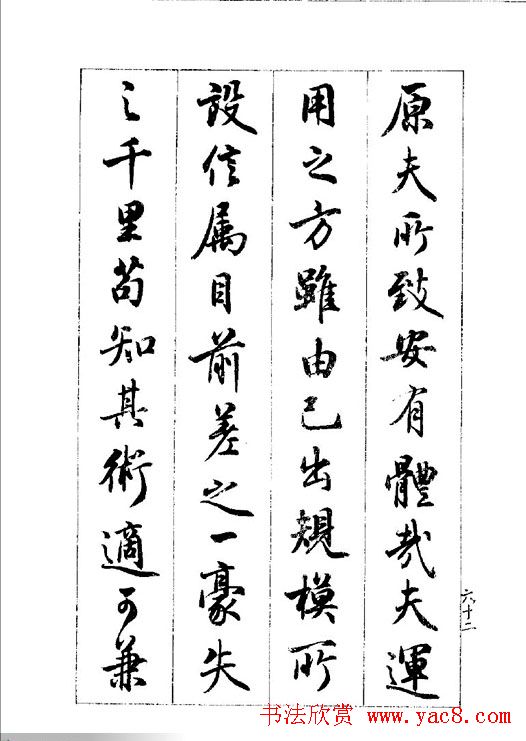 原夫所致安有體哉夫運
用之方雖由己出規模所
設信屬目前差之一豪失
之千里苟知其術適可兼
六十二
书法欣赏 www.yac8.com